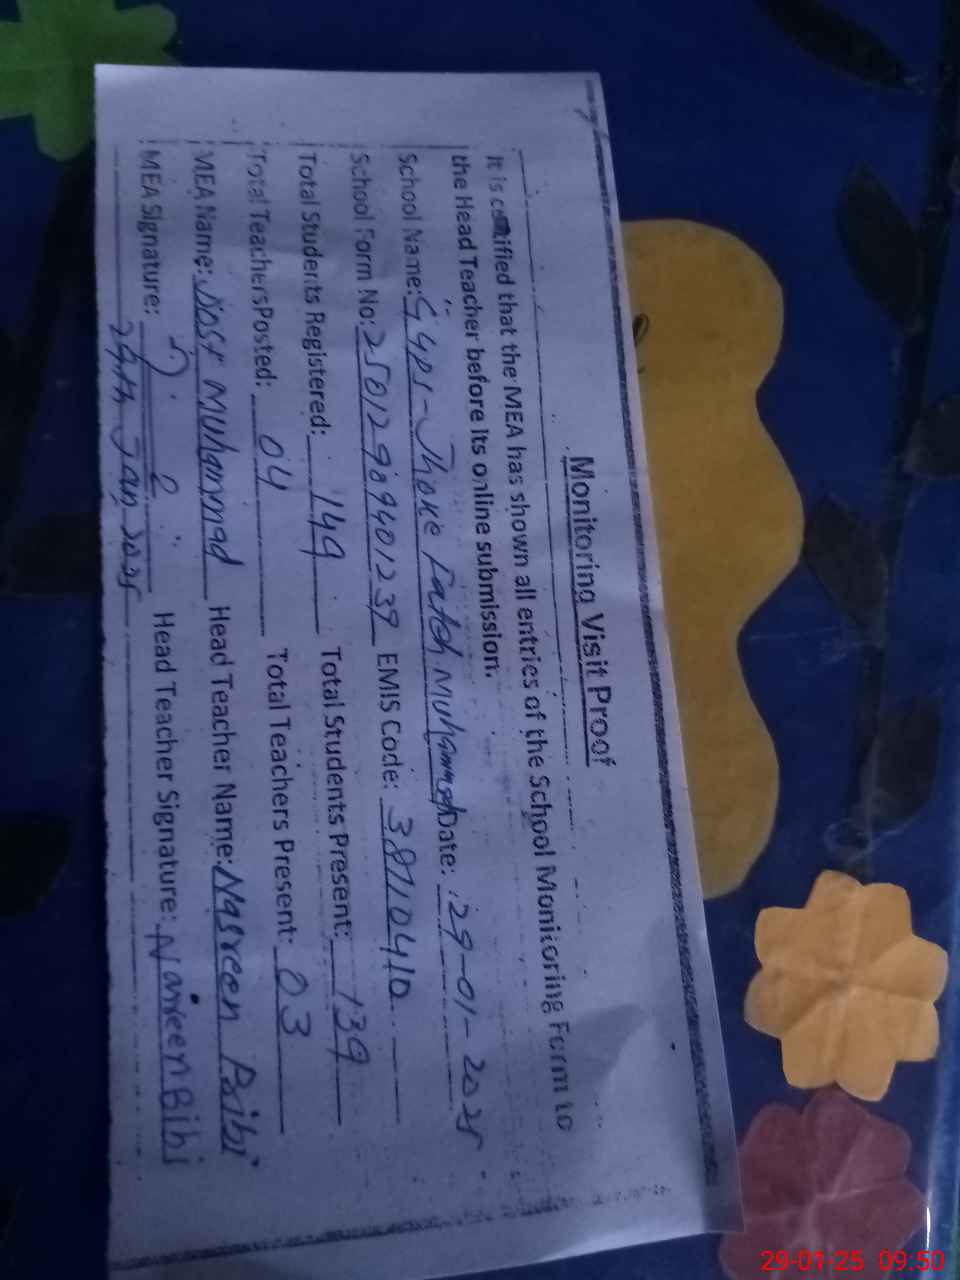 Monitoring Visit Proof
It is certified that the MEA has shown all entries of the School Monitoring Form to
the Head Teacher before its online submission.
School Name: GGPS- Jhoke Fateh Muhammad Date: 29-01-2025
School Form No: 25012989401239 EMIS Code: 38710410
Total Students Registered: 149 Total Students Present: 139
Total Teachers Posted: 04 Total Teachers Present: 03
MEA Name: Muhammad Head Teacher Name: Nasreen Bibi
MEA Signature: Head Teacher Signature: Nasreen Bibi
29th Jan 2025
29-01-25 09:50